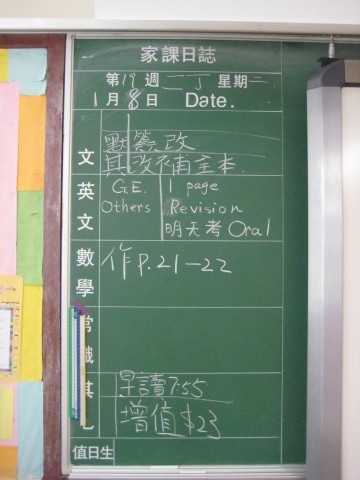 家課日誌
第19週 二丁 星期二
1月8日 Date.
默簽改
文 其改補全本.
英 G.E. 1 page
文 Others Revision
明天考 Oral
數 作P.21-22
學
常
識
其
早讀7:55
增值$23
值日生